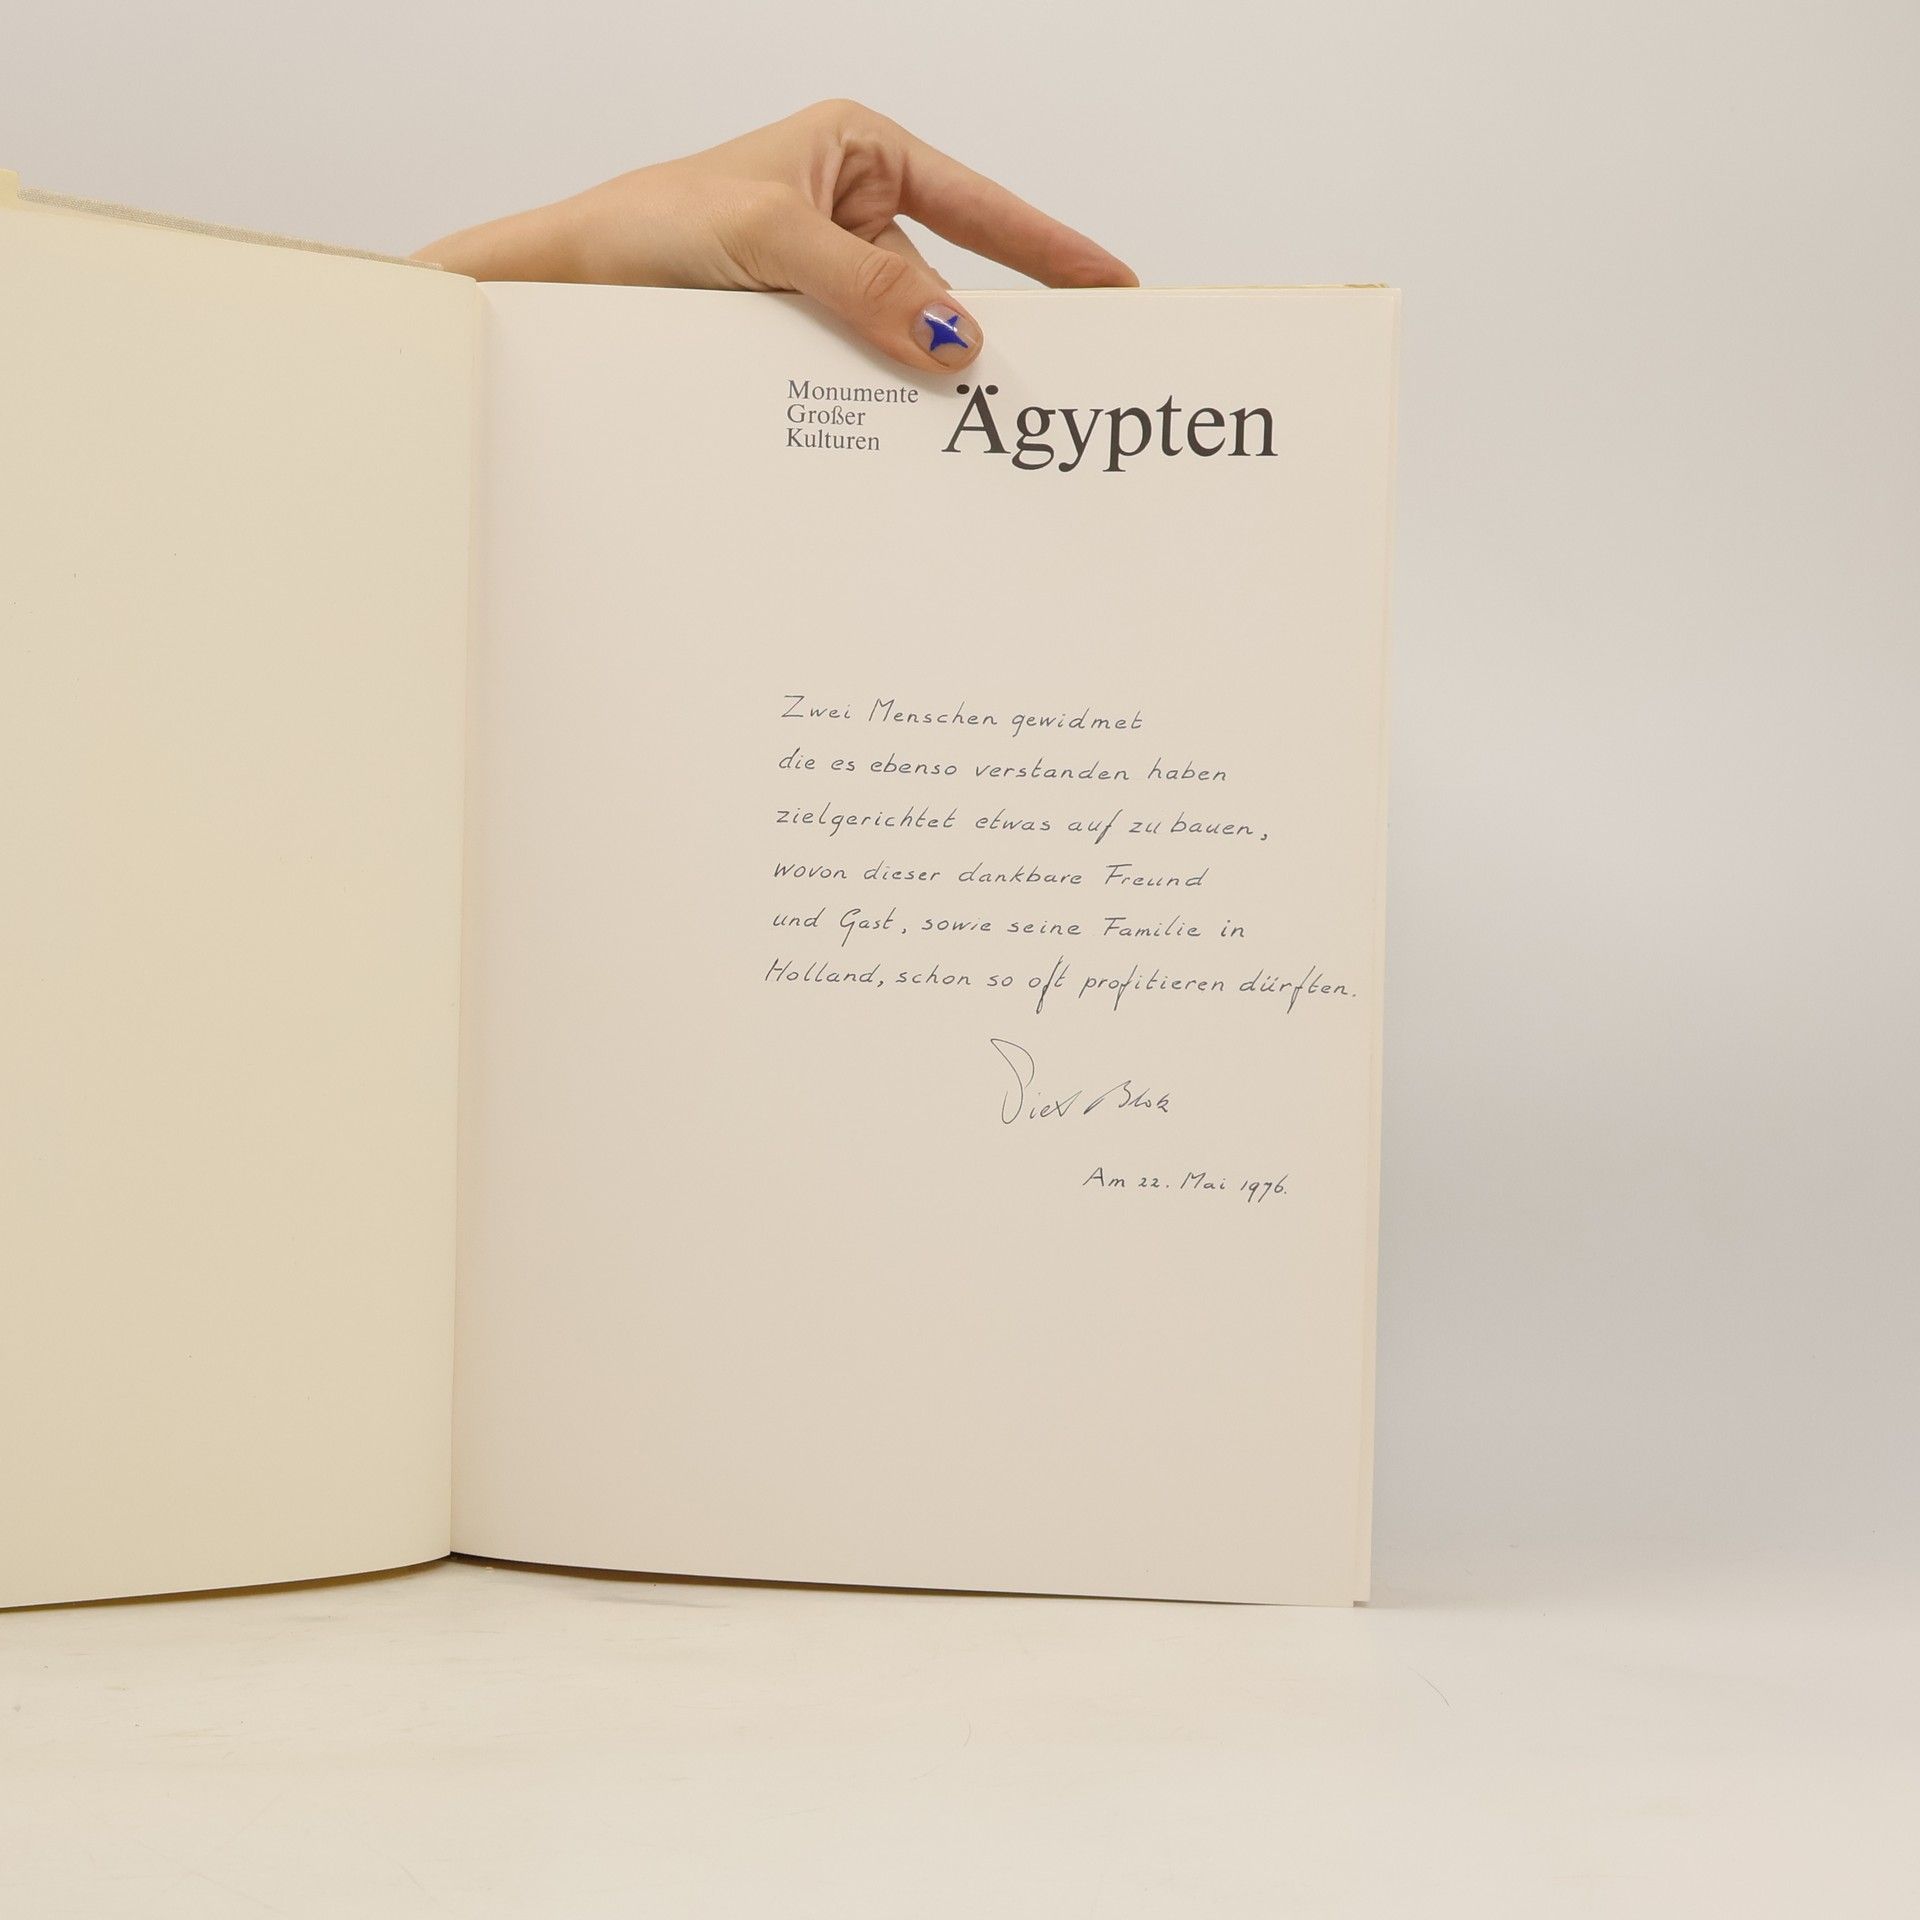 Monumente
Großer
Kulturen
Ägypten
Zwei Menschen gewidmet
die es ebenso verstanden haben
zielgerichtet etwas auf zu bauen,
wovon dieser dankbare Freund
und Gast, sowie seine Familie in
Holland, schon so oft profitieren dürften.
Piet Blok
Am 22. Mai 1976.